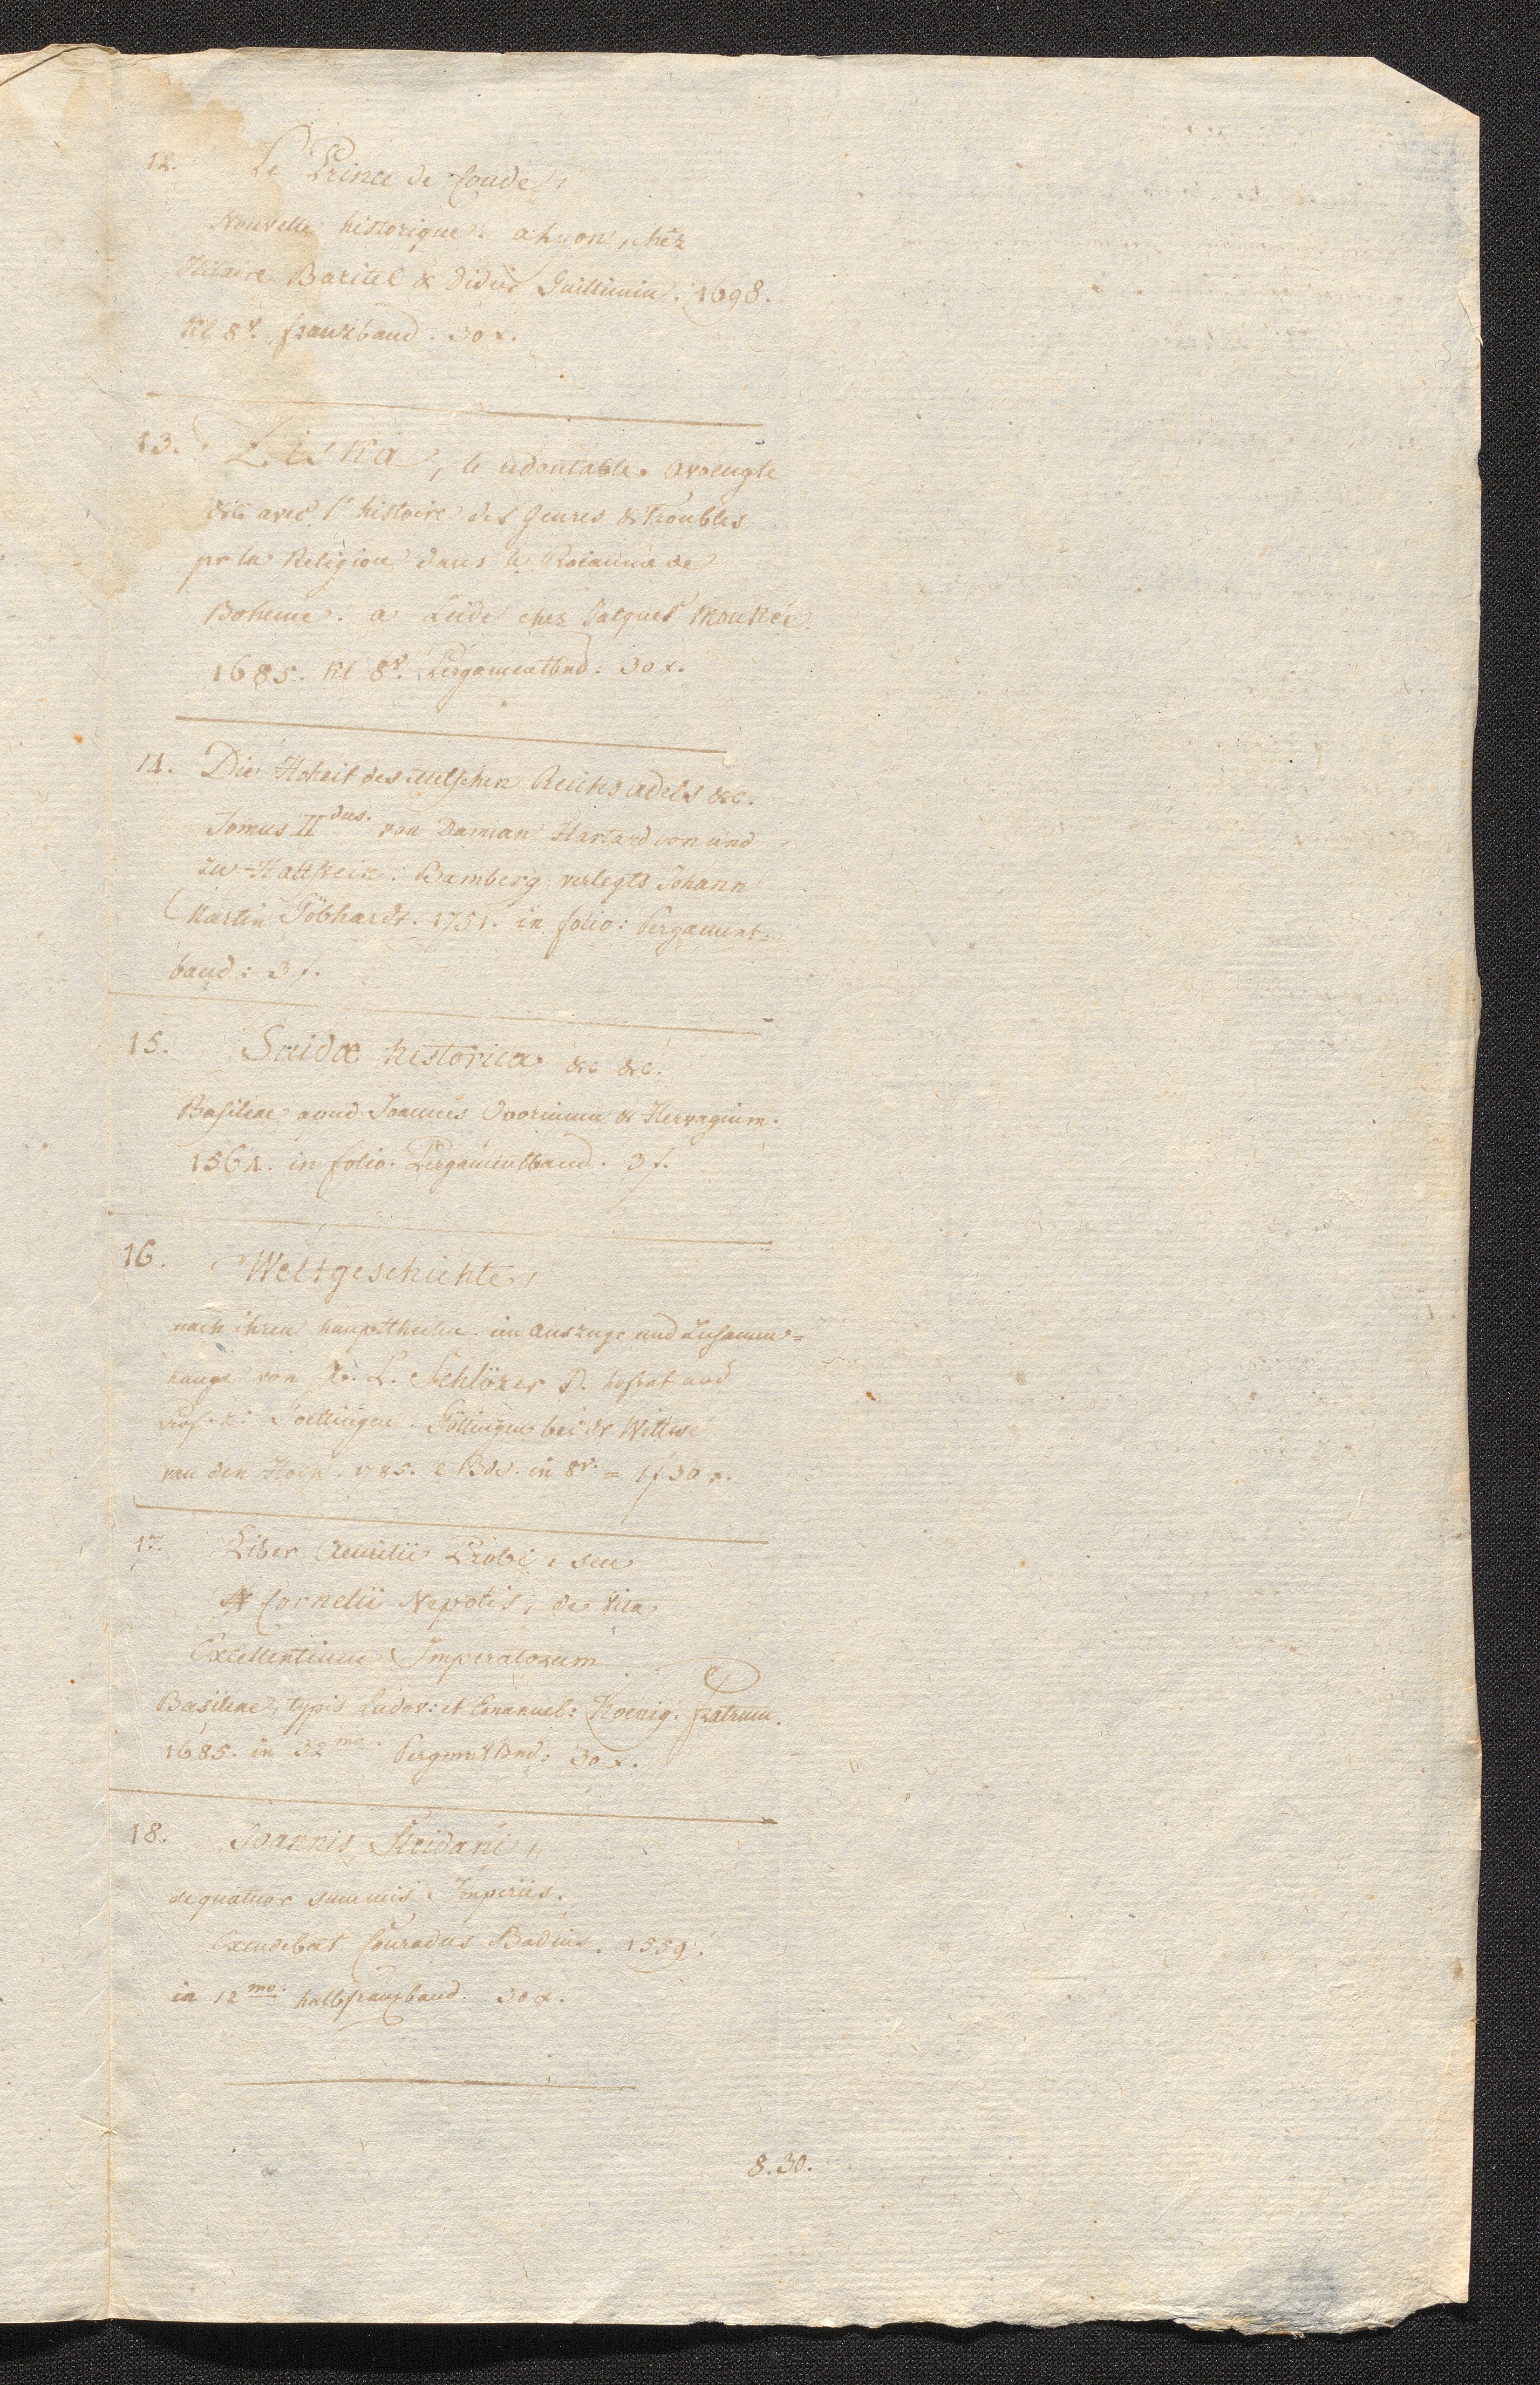 12. Le Prince de Conde,
Nouvelle historique. a Lyon, chez
Hilaire Baritel & Didier Guillimin. 1698.
Kl 8v. franzband. 30 x.
13. Ziska, le redoutable. Avaeugle
&c avec l'histoire des Geures & Troubles
pr la Religion dans le Roiaume de
Boheme. a Leide chez Jacques Moukée
1685. Kl 8v. Pergamentbnd: 30 x.
14. Die Hoheit des teutschen Reichs adels &c.
Tomus II dus. von Damian Hartard von und
zu Hattstein: Bamberg verlegts Johann
Martin Göbhardt. 1751. in folio: Pergament=
band: 3 f.
15. Suidæ historica &c &c.
Basileae apud Joannes Oporinum & Hervagium.
1564. in folio. Pergamentband. 3 f.
16. Weltgeschichte,
nach ihren haupttheilen im Auszuge und Zusamm=
hange von A. L. Schlözer D. hofrat und
Prof. z: Goettingen. Göttingen bei dr Wittwe
van den Hoek. 1785. 2 Bde. in 8v. = 1 f 30 x.
17. Liber Aemilii Probi, seu
Cornelii Nepotis, de Vita
Excellentium Imperatorum
Basileae, typis Ludov: et Emanuel: Koenig. Fratrum.
1685. in 32mo. Pergmntbnd: 30 x.
18. Joannis Sleidani,
de quatuor summis Imperiis.
Excudebat Conradus Badius. 1559.
in 12mo. halbfranzband. 30 x.
8.30.